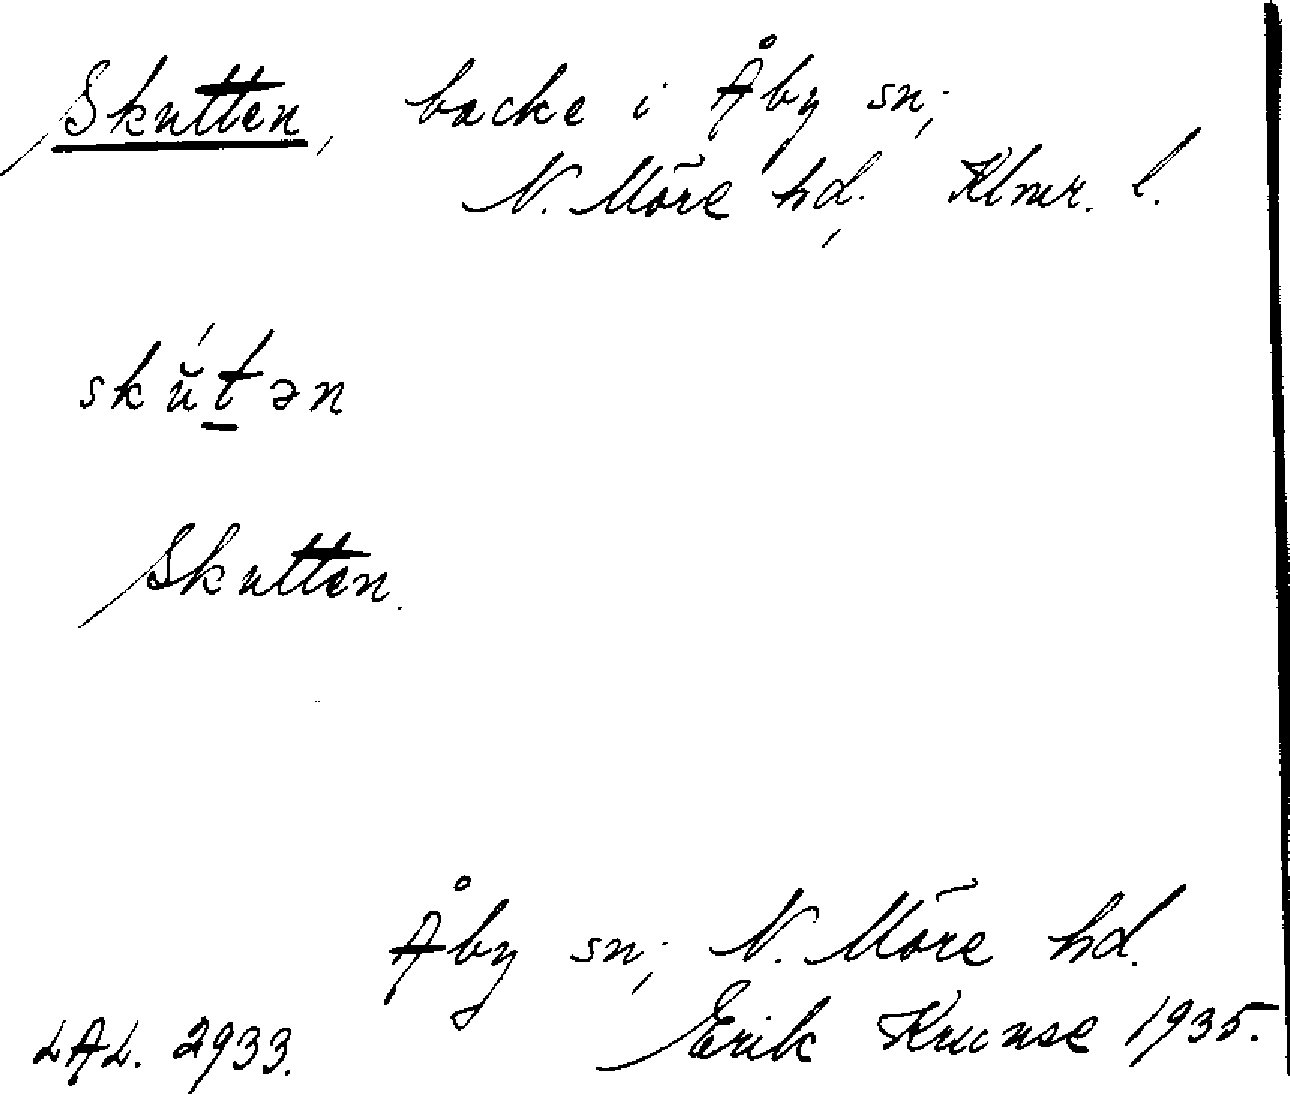 Skutten, backe i Åby sn.,
N. Möre hd., Klmr. l.
skŭ́t̲ən
Skutten.
Åby sn., N. Möre hd.
LAL. 2933. Erik Kruuse 1935.